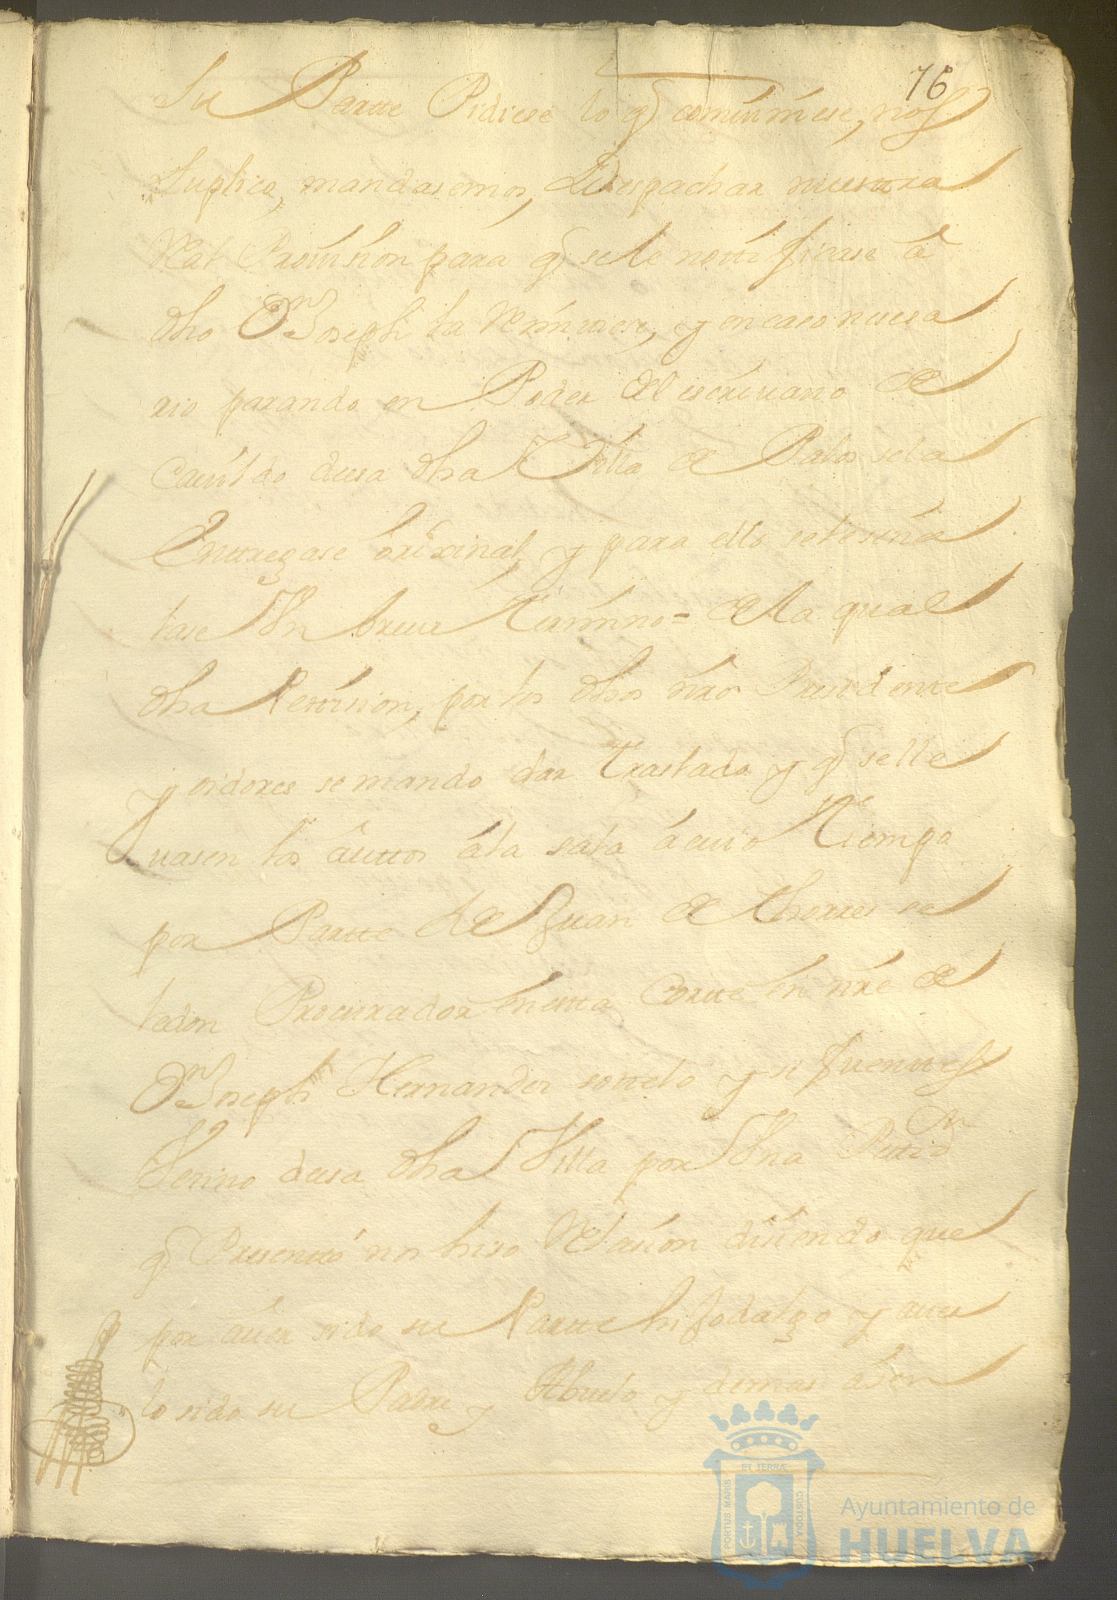 76
Su Partte Pidiese lo q combiniese, nos
Suplico, mandasemos, Despachar nuestra
Rl Provision para q se le nottificase á
dho Dn Joseph la Remitiese, y en caso nesesa
rio parando en Poder del escrivano de
Cavildo desa dha Villa de Palos se la
Entregase original, y para ello se le seña
lase Un breve Termino = de la qual
dha Petision, por los dhos nros Presidente
y oidores se mando dar Traslado y q se lle
vasen los auttos á la sala á cuio Tiempo
por Partte de Juan de Thorres se
ladon Procurador en esta Cortte en nre de
Dn Joseph Hernandes sottelo y si fuenttes
Vesino desa dha Villa por Una Petision
q Presentó nos hiso Relasion disiendo que
por aver sido su Partte hijodalgo y aver
lo sido su Padre y Abuelo y demas asen
Ayuntamiento de
HUELVA
PORTUS MARIS
ET TERRÆ
CUSTODIA